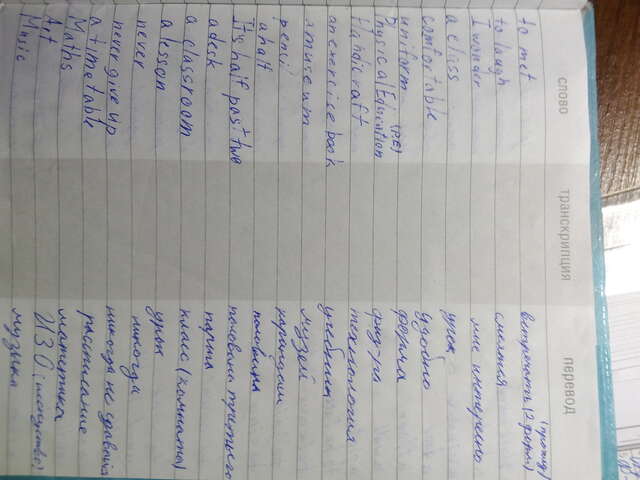 слово транскрипция перевод
to met встречать (2 форма)
to laugh смеятся
I wonder мне интересно
a class урок
comfortable удобно
uniform форма
Physical Education (PE) физ-ра
Handicraft технология
an exercise book учебник
a museum музей
pencil карандаш
a half половина
It's half past two половина третьего
a desk парта
a classroom класс (комната)
a lesson урок
never никогда
never give up никогда не сдавайся
a timetable расписание
Maths математика
Art ИЗО (искусство)
Music музыка